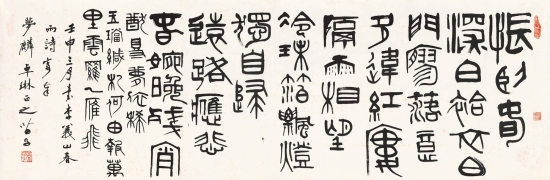 悵臥春
深白袷衣白
門寥落意
多違紅樓
隔雨相望
冷珠箔飄燈
獨自歸
遠路應悲
春晼晚殘宵
猶得夢依稀
玉璫緘札何由報萬
里雲羅一雁飛
壬申三月書李義山春
雨詩寄奉
夢麟卓琳正之